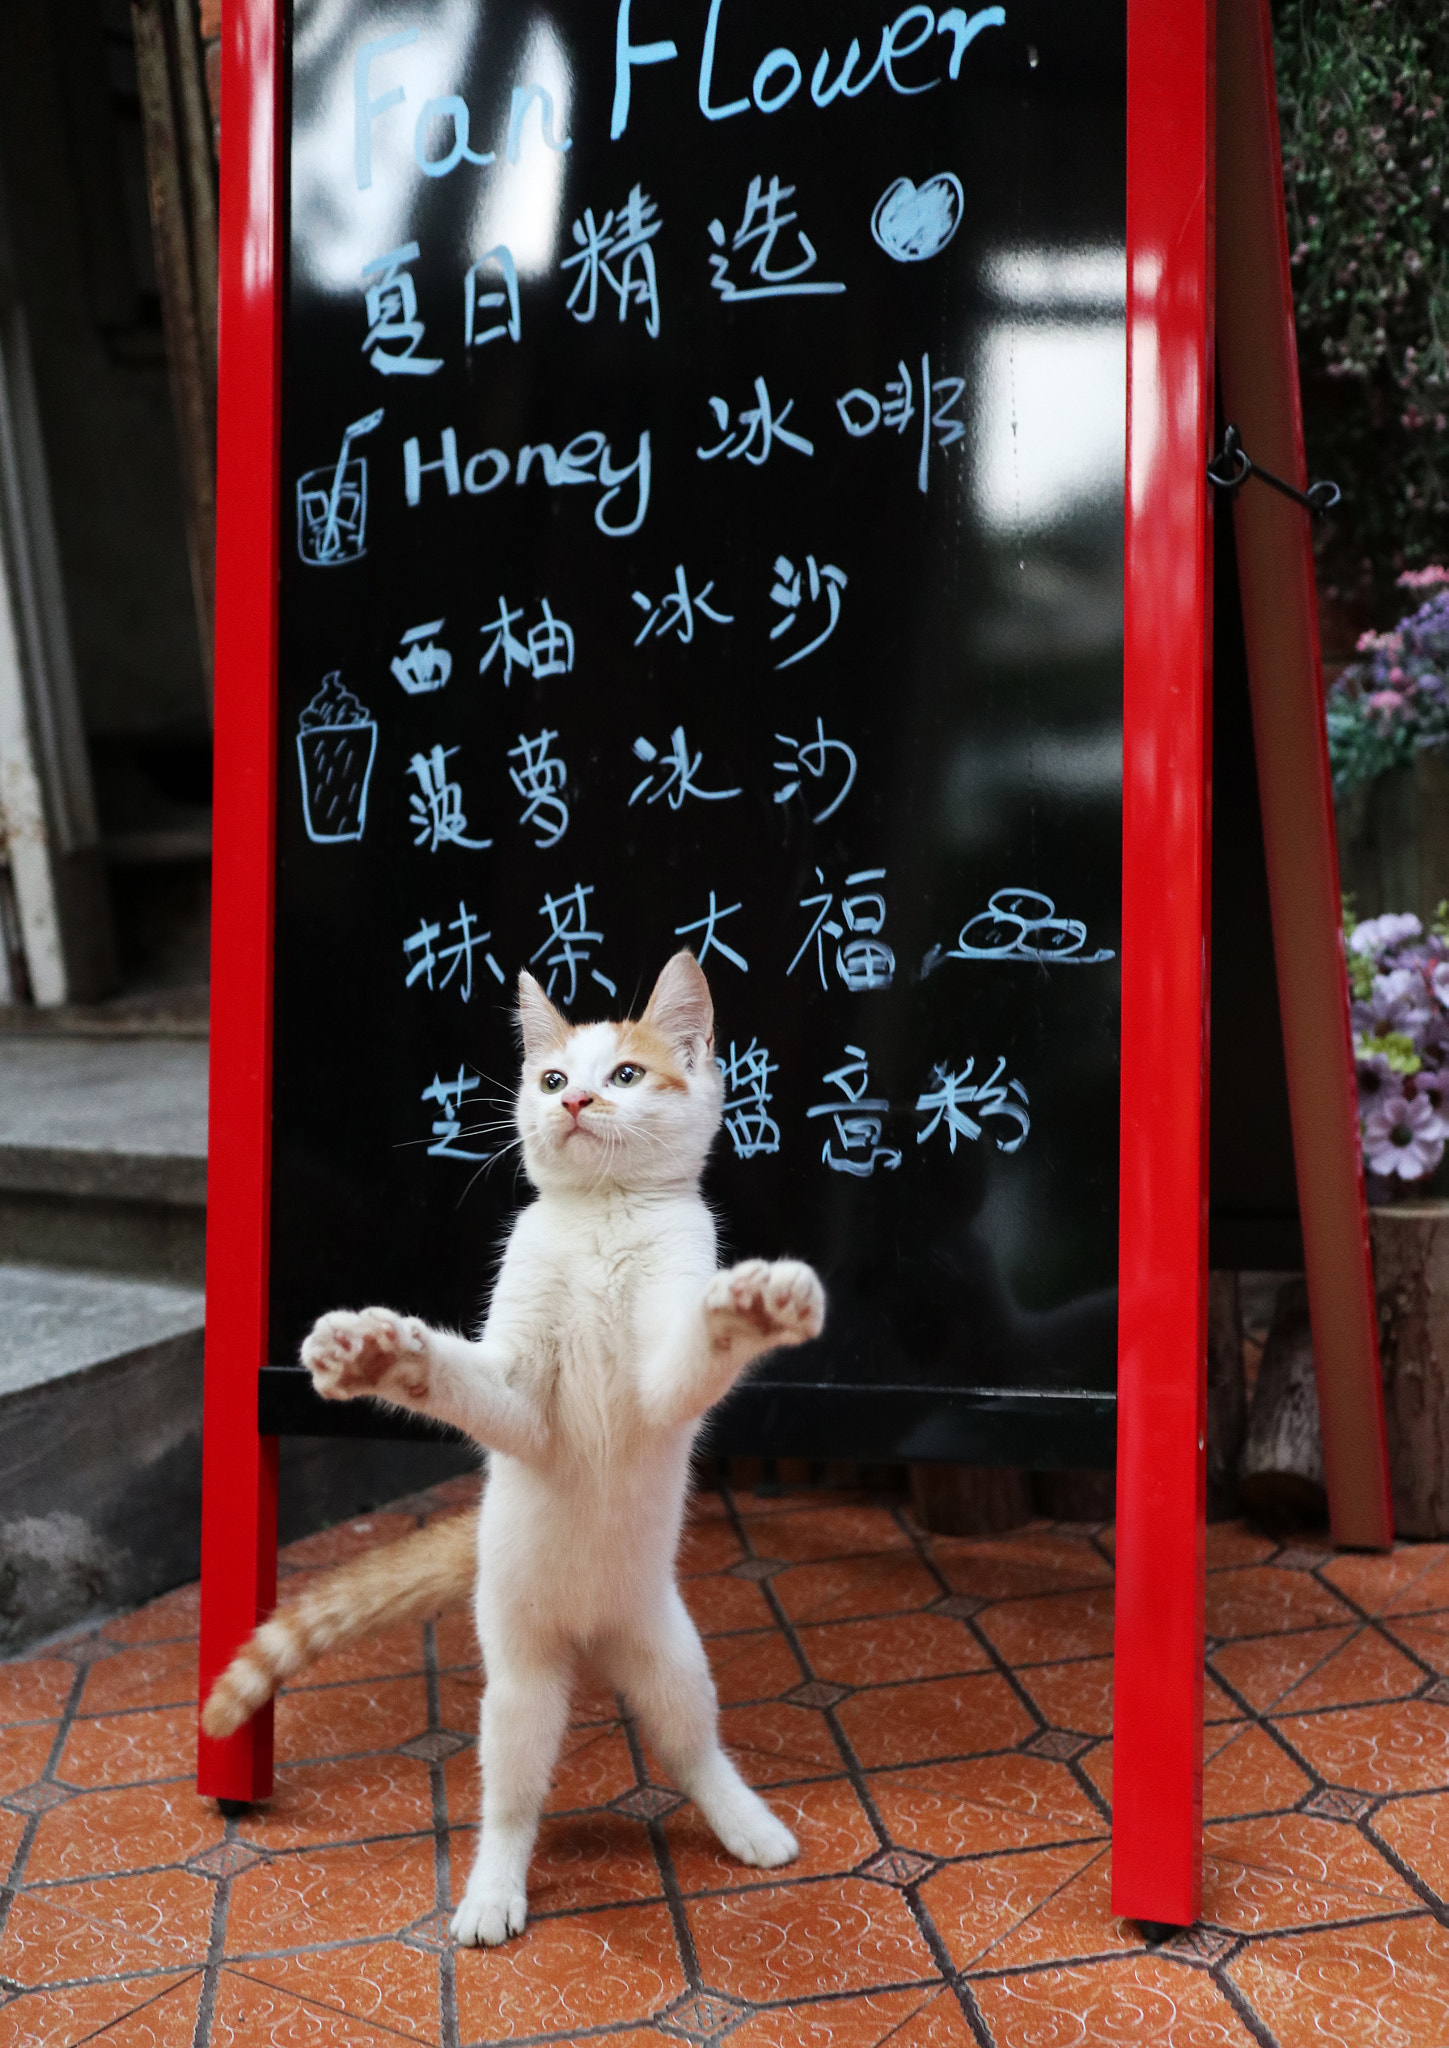 Fan Flower
夏日精选
Honey 冰啡
西柚冰沙
菠萝冰沙
抹茶大福
芝 醬意粉